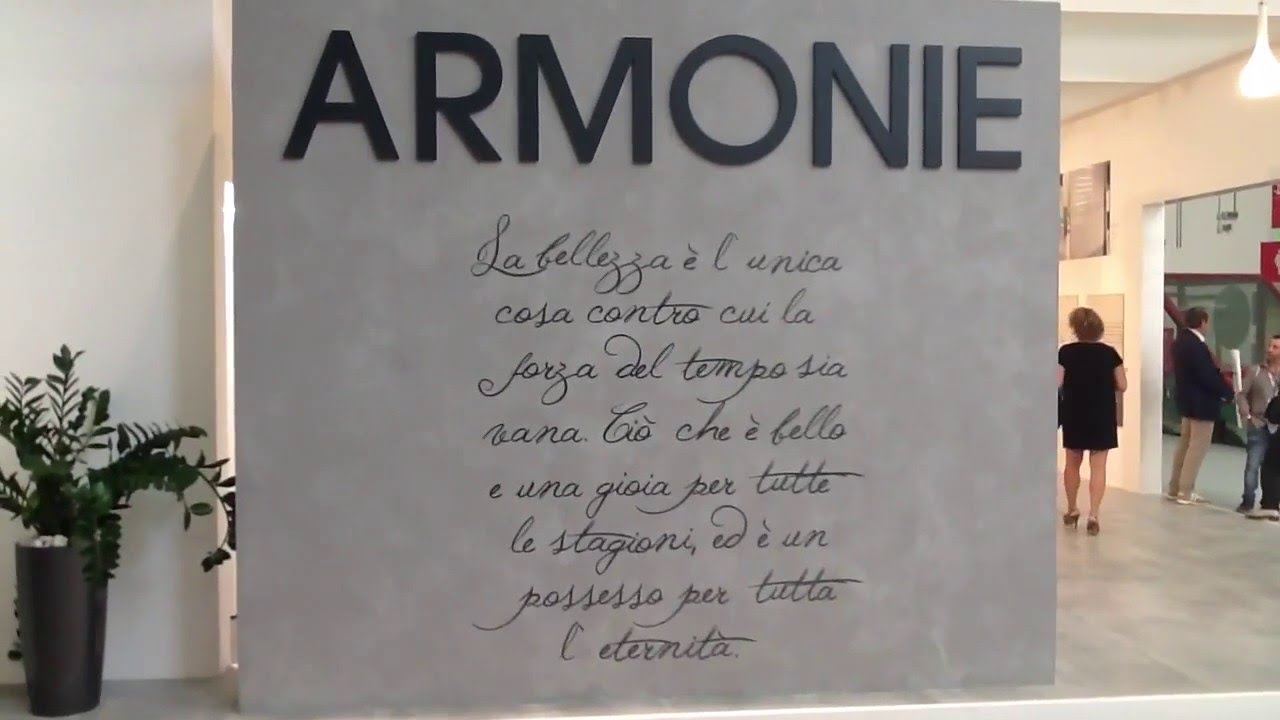 ARMONIE
La bellezza è l'unica
cosa contro cui la
forza del tempo sia
vana. Ciò che è bello
e una gioia per tutte
le stagioni, ed è un
possesso per tutta
l'eternità.